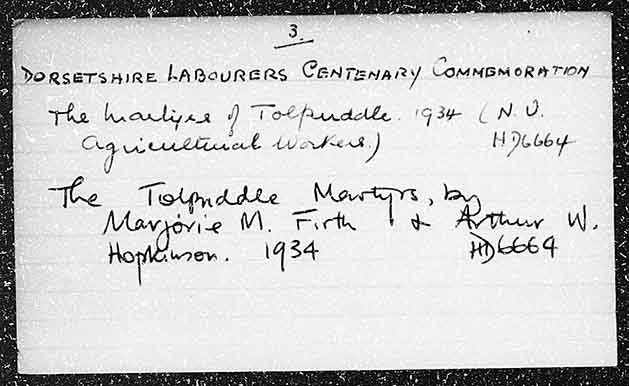 3.
DORSETSHIRE LABOURERS CENTENARY COMMEMORATION
The Martyrs of Tolpuddle. 1934 (N.U.
Agricultural Workers.) HD6664
The Tolpuddle Martyrs, by
Marjorie M. Firth & Arthur W.
Hopkinson. 1934 HD6664